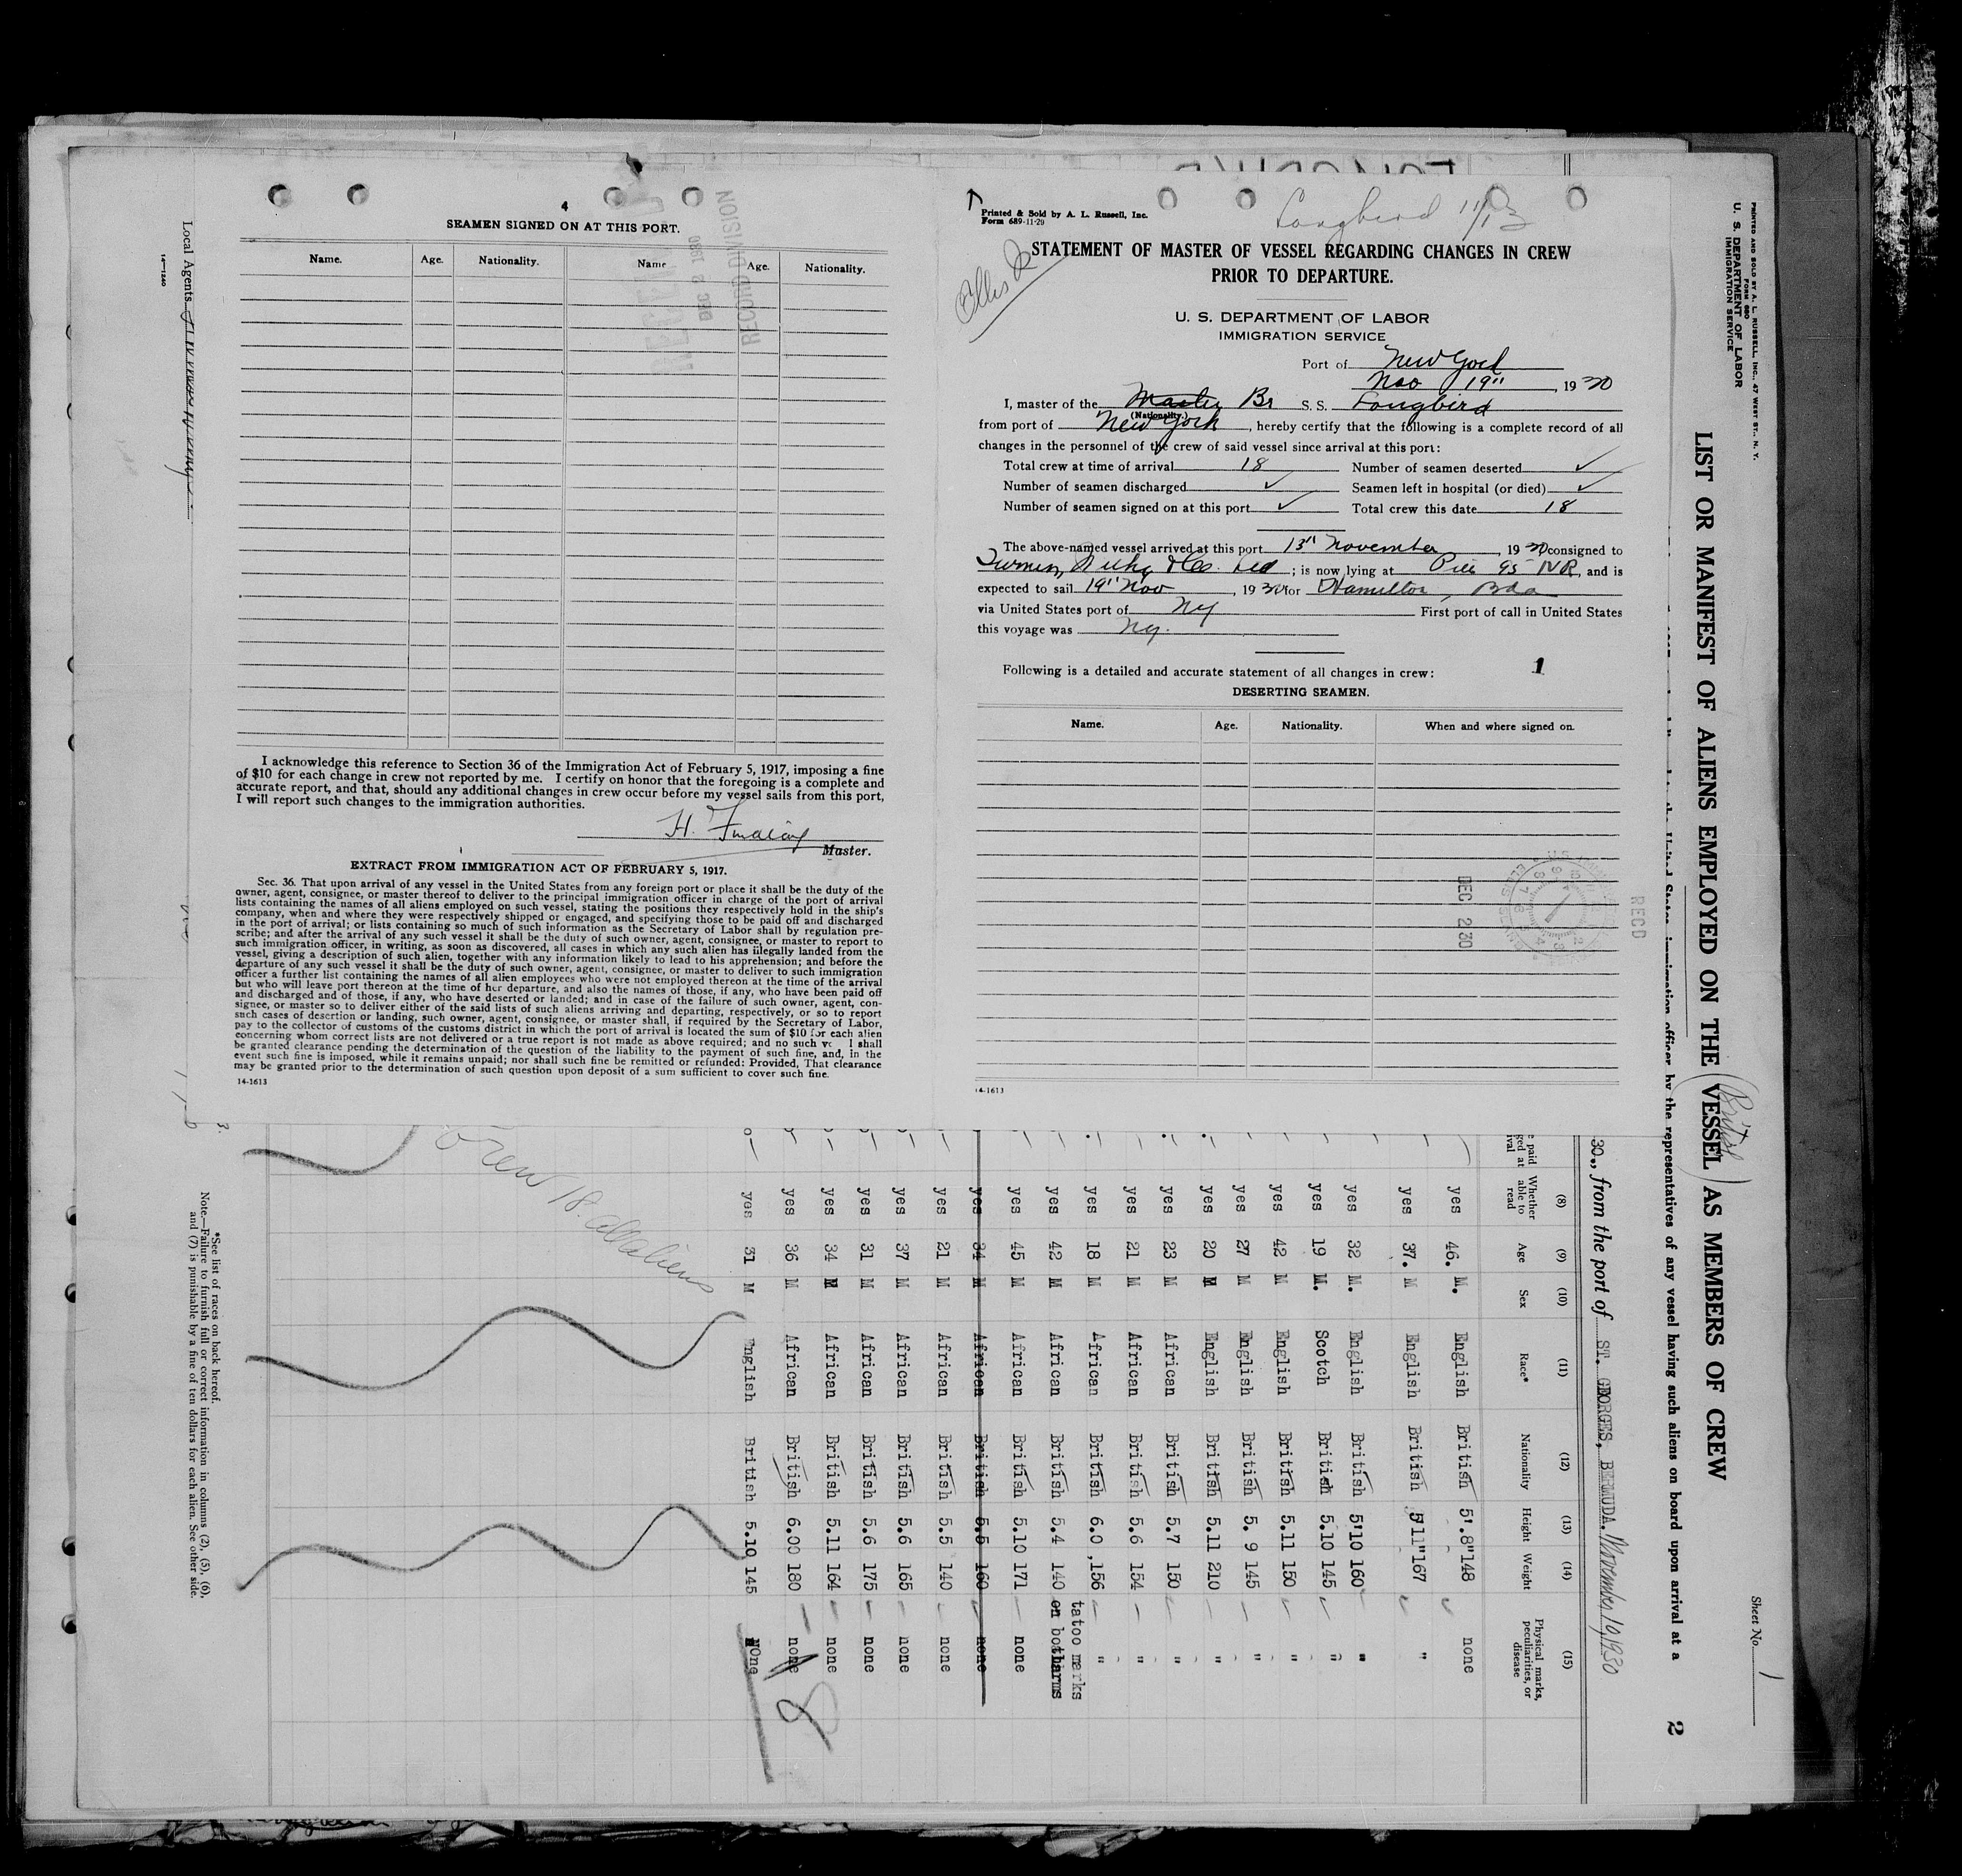 4
SEAMEN SIGNED ON AT THIS PORT.
Name. Age. Nationality. Name Age. Nationality.
RECORD DIVISION
DEC 2 1930
I acknowledge this reference to Section 36 of the Immigration Act of February 5, 1917, imposing a fine
of $10 for each change in crew not reported by me. I certify on honor that the foregoing is a complete and
accurate report, and that, should any additional changes in crew occur before my vessel sails from this port,
I will report such changes to the immigration authorities.
H.
Master.
EXTRACT FROM IMMIGRATION ACT OF FEBRUARY 5, 1917.
Sec. 36. That upon arrival of any vessel in the United States from any foreign port or place it shall be the duty of the
owner, agent, consignee, or master thereof to deliver to the principal immigration officer in charge of the port of arrival
lists containing the names of all aliens employed on such vessel, stating the positions they respectively hold in the ship's
company, when and where they were respectively shipped or engaged, and specifying those to be paid off and discharged
in the port of arrival; or lists containing so much of such information as the Secretary of Labor shall by regulation pre-
scribe; and after the arrival of any such vessel it shall be the duty of such owner, agent, consignee, or master to report to
such immigration officer, in writing, as soon as discovered, all cases in which any such alien has illegally landed from the
vessel, giving a description of such alien, together with any information likely to lead to his apprehension; and before the
departure of any such vessel it shall be the duty of such owner, agent, consignee, or master to deliver to such immigration
officer a further list containing the names of all alien employees who were not employed thereon at the time of the arrival
but who will leave port thereon at the time of her departure, and also the names of those, if any, who have been paid off
and discharged and of those, if any, who have deserted or landed; and in case of the failure of such owner, agent, con-
signee, or master so to deliver either of the said lists of such aliens arriving and departing, respectively, or so to report
such cases of desertion or landing, such owner, agent, consignee, or master shall, if required by the Secretary of Labor,
pay to the collector of customs of the customs district in which the port of arrival is located the sum of $10 for each alien
concerning whom correct lists are not delivered or a true report is not made as above required; and no such ve l shall
be granted clearance pending the determination of the question of the liability to the payment of such fine, and, in the
event such fine is imposed, while it remains unpaid; nor shall such fine be remitted or refunded: Provided, That clearance
may be granted prior to the determination of such question upon deposit of a sum sufficient to cover such fine.
14-1613
Printed & Sold by A. L. Russell, Inc.
Form 689-11-29
Longbird 11/13
Ellis
STATEMENT OF MASTER OF VESSEL REGARDING CHANGES IN CREW
PRIOR TO DEPARTURE.
U. S. DEPARTMENT OF LABOR
IMMIGRATION SERVICE
Port of New York
Nov 19", 1930
I, master of the Master Br S. S. Longbird
(Nationality.)
from port of New York, hereby certify that the following is a complete record of all
changes in the personnel of the crew of said vessel since arrival at this port:
Total crew at time of arrival 18 Number of seamen deserted ✓
Number of seamen discharged ✓ Seamen left in hospital (or died) ✓
Number of seamen signed on at this port ✓ Total crew this date 18
The above-named vessel arrived at this port 13" November, 1930 consigned to
Ltd; is now lying at Pier 95 NR, and is
expected to sail 19" Nov, 1930 for Hamilton, Bda
via United States port of NY First port of call in United States
this voyage was NY.
Following is a detailed and accurate statement of all changes in crew: 1
DESERTING SEAMEN.
Name. Age. Nationality. When and where signed on.
DEC 2 30
RECD
14-1613
Local Agents
14-1240
PRINTED AND SOLD BY A. L. RUSSELL, INC., 47 WEST ST., N. Y.
FORM 680
U. S. DEPARTMENT OF LABOR
IMMIGRATION SERVICE
Sheet No. 1
LIST OR MANIFEST OF ALIENS EMPLOYED ON THE VESSEL AS MEMBERS OF CREW
British
officer by the representatives of any vessel having such aliens on board upon arrival at a
2
30., from the port of ST. GEORGES, BERMUDA. November 10, 1930
(8) (9) (10) (11) (12) (13) (14) (15)
Whether able to read Age Sex Race* Nationality Height Weight Physical marks, peculiarities, or disease
yes 46. M. English British 5'.8" 148 none
yes 37. M English British 5'11" 167 "
yes 32 M. English British 5'10 160 "
yes 19 M. Scotch British 5.10 145 "
yes 42 M English British 5.11 150 "
yes 27 M English British 5. 9 145 "
yes 20 M English British 5.11 210 "
yes 23 M African British 5.7 150 "
yes 21 M African British 5.6 154 "
yes 18 M African British 6.0 ,156 "
yes 42 M African British 5.4 140 tatoo marks on botharms
yes 45 M African British 5.10 171 none
yes 34 M African British 5.5 160 none
yes 21 M African British 5.5 140 none
yes 37 M African British 5.6 165 none
yes 31 M African British 5.6 175 none
yes 34 M African British 5.11 164 none
yes 36 M African British 6.00 180 none
yes 31 M English British 5.10 145 None
18
Crew 18. all aliens
*See list of races on back hereof.
Note.—Failure to furnish full or correct information in columns (2), (5), (6),
and (7) is punishable by a fine of ten dollars for each alien. See other side.